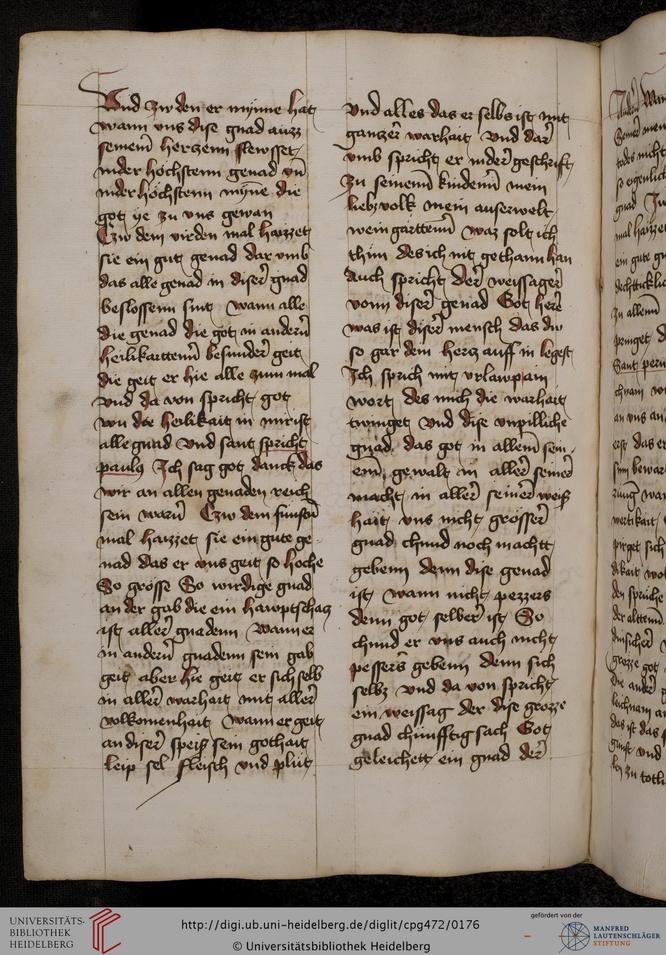 Vnd zw den er mynne hat
wann vns dise gnad auzz
seinem herczenn flewsset
in der höchstenn genad vn
in der höchstenn myne die
got ye zu vns gewan
Czw dem virden mal haizzet
sie ein gut genad dar vmb
das alle genad in diser gnad
beslossenn sint wann alle
die genad die got in andern
heilikaittenn besunder geit
die geit er hie alle zum mal
vnd da von spricht got
von die heilikait in mir ist
alle gnad vnd sant spricht
paulus Ich sag got danck das
wir an allen genaden reich
sein warn Czw dem funften
mal haizzet sie ein gute ge
nad das er vns geit so hoche
So grosse So wirdige gnad
an der gab die ein hawptschacz
ist aller gnadenn Wann er
in andern gnadenn sein gab
geit aber hie geit er sich selb
in aller warhait mit aller
volkomenhait Wann er geit
an diser speiß sein gothait
leip sel fleisch vnd plut
vnd alles das er selbs ist mit
ganzer warhait Vnd dar
vmb spricht er in der geschrift
Zu seinenn kindenn mein
liebz volk mein auserwelt
wein garttenn waz solt ich
thun des ich nit gethann han
Auch spricht der weissager
vonn diser genad Got here
was ist diser mensch das du
so gar dein hercz auff in legest
Ich sprich mit vrlawp ain
wort des mich die warhait
twinget vnd dise vnpilliche
gnad das got in allem sein
em gewalt in aller seiner
macht in aller seiner weiß
hait vns nicht grösser
gnad chund noch machtt
gebenn denn dise genad
ist wann nicht pezzers
denn got selber ist So
chund er vns auch nicht
pessers gebenn denn sich
selbz vnd da von spricht
ein weissag der dise grozze
gnad chunfftig sach Got
geleichett ein gnad der
UNIVERSITÄTS-
BIBLIOTHEK
HEIDELBERG
http://digi.ub.uni-heidelberg.de/diglit/cpg472/0176
© Universitätsbibliothek Heidelberg
gefördert von der
MANFRED
LAUTENSCHLÄGER
STIFTUNG